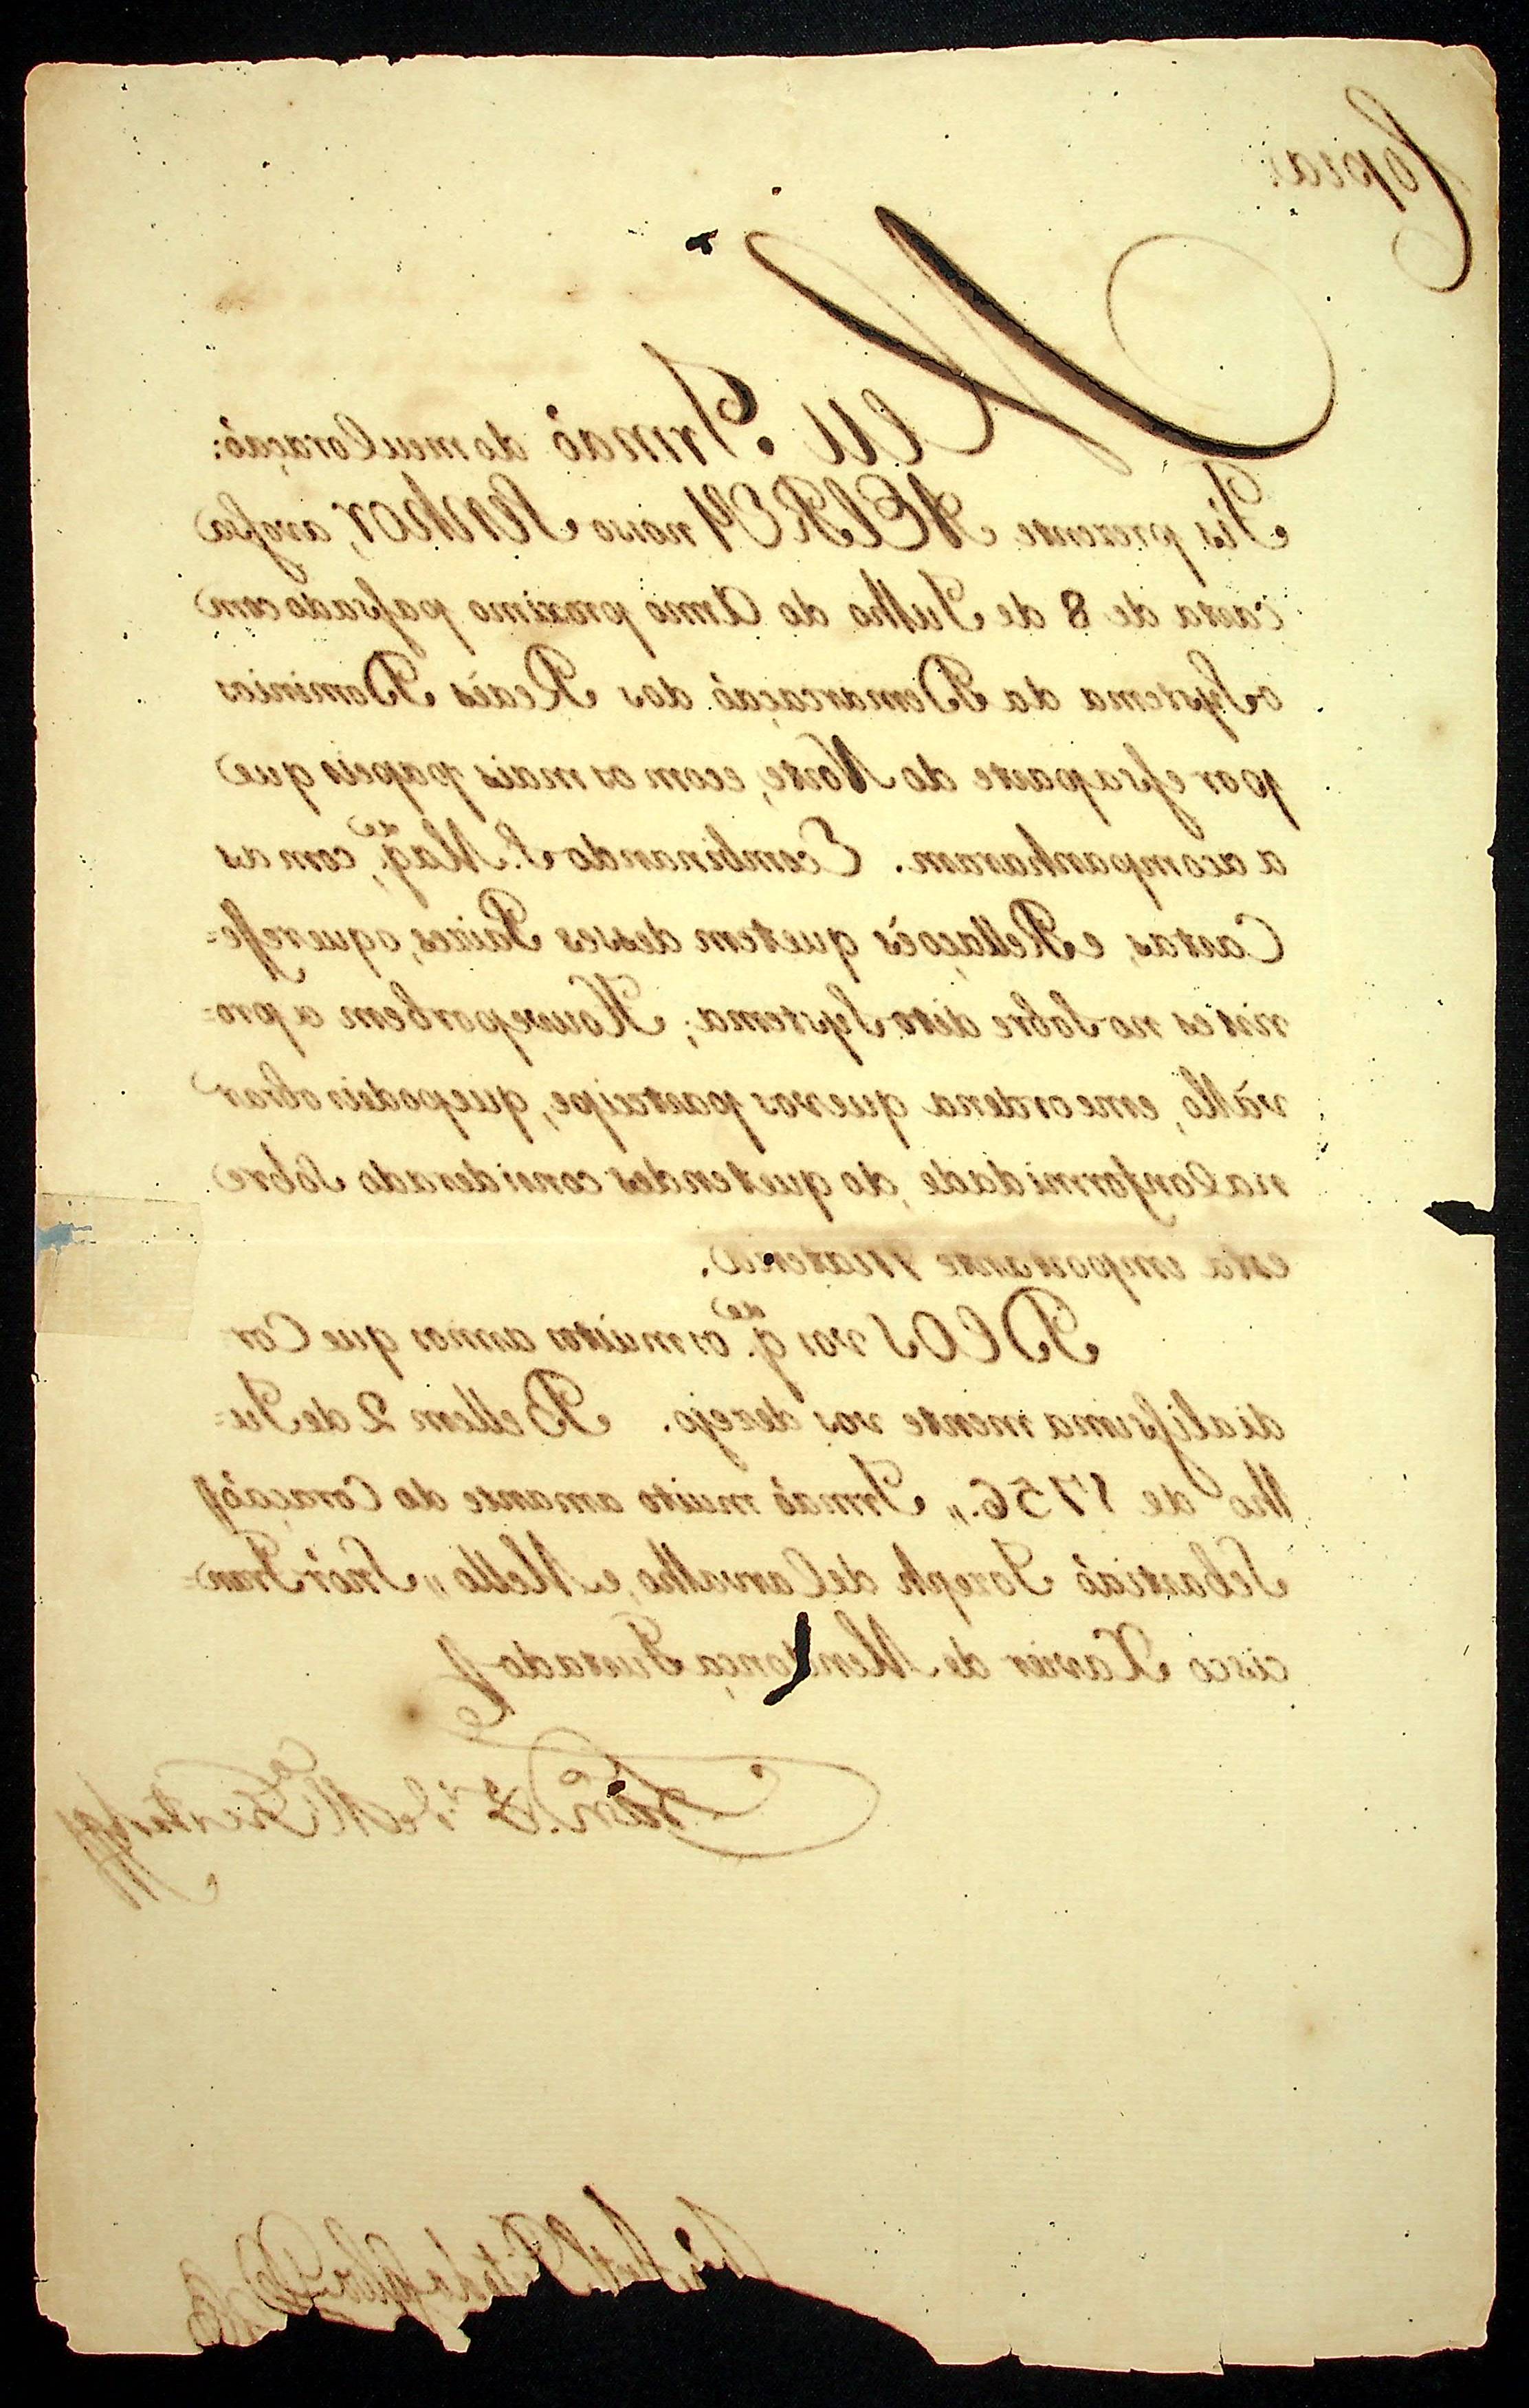 Copia.
Meu Irmaõ do meu Coraçaõ:
Fis prezente A ELREY nosso Senhor, avossa
carta de 8 de Julho do Anno proximo passado com
o Systema da Demarcaçaõ dos Reais Dominios
por essa parte do Norte, ecom os mais papeis que
a acompanharam. Ecombinando S. Mag.de, com as
Cartas, e Rellaçoẽs que tem desses Paizes, o que refe=
ristes no Sobre dito Systema; Houve por bem apro=
vàllo, eme ordena que vos participe, que podeis obrar
na Conformidade, do que tendes considerado Sobre
esta importante Materia.
DEOS vos g.de os muitos annos que Cor
dialissima mente vos dezejo. Bellem 2 de Ju=
lho de 1756.,, Irmaõ muito amante do Coraçaõ
Sebastiaõ Jozeph de Carvalho, e Mello,, Snõr Fran=
cisco Xavier de Mendonça Furtado
Fran.co X.er de M.ça Furtado